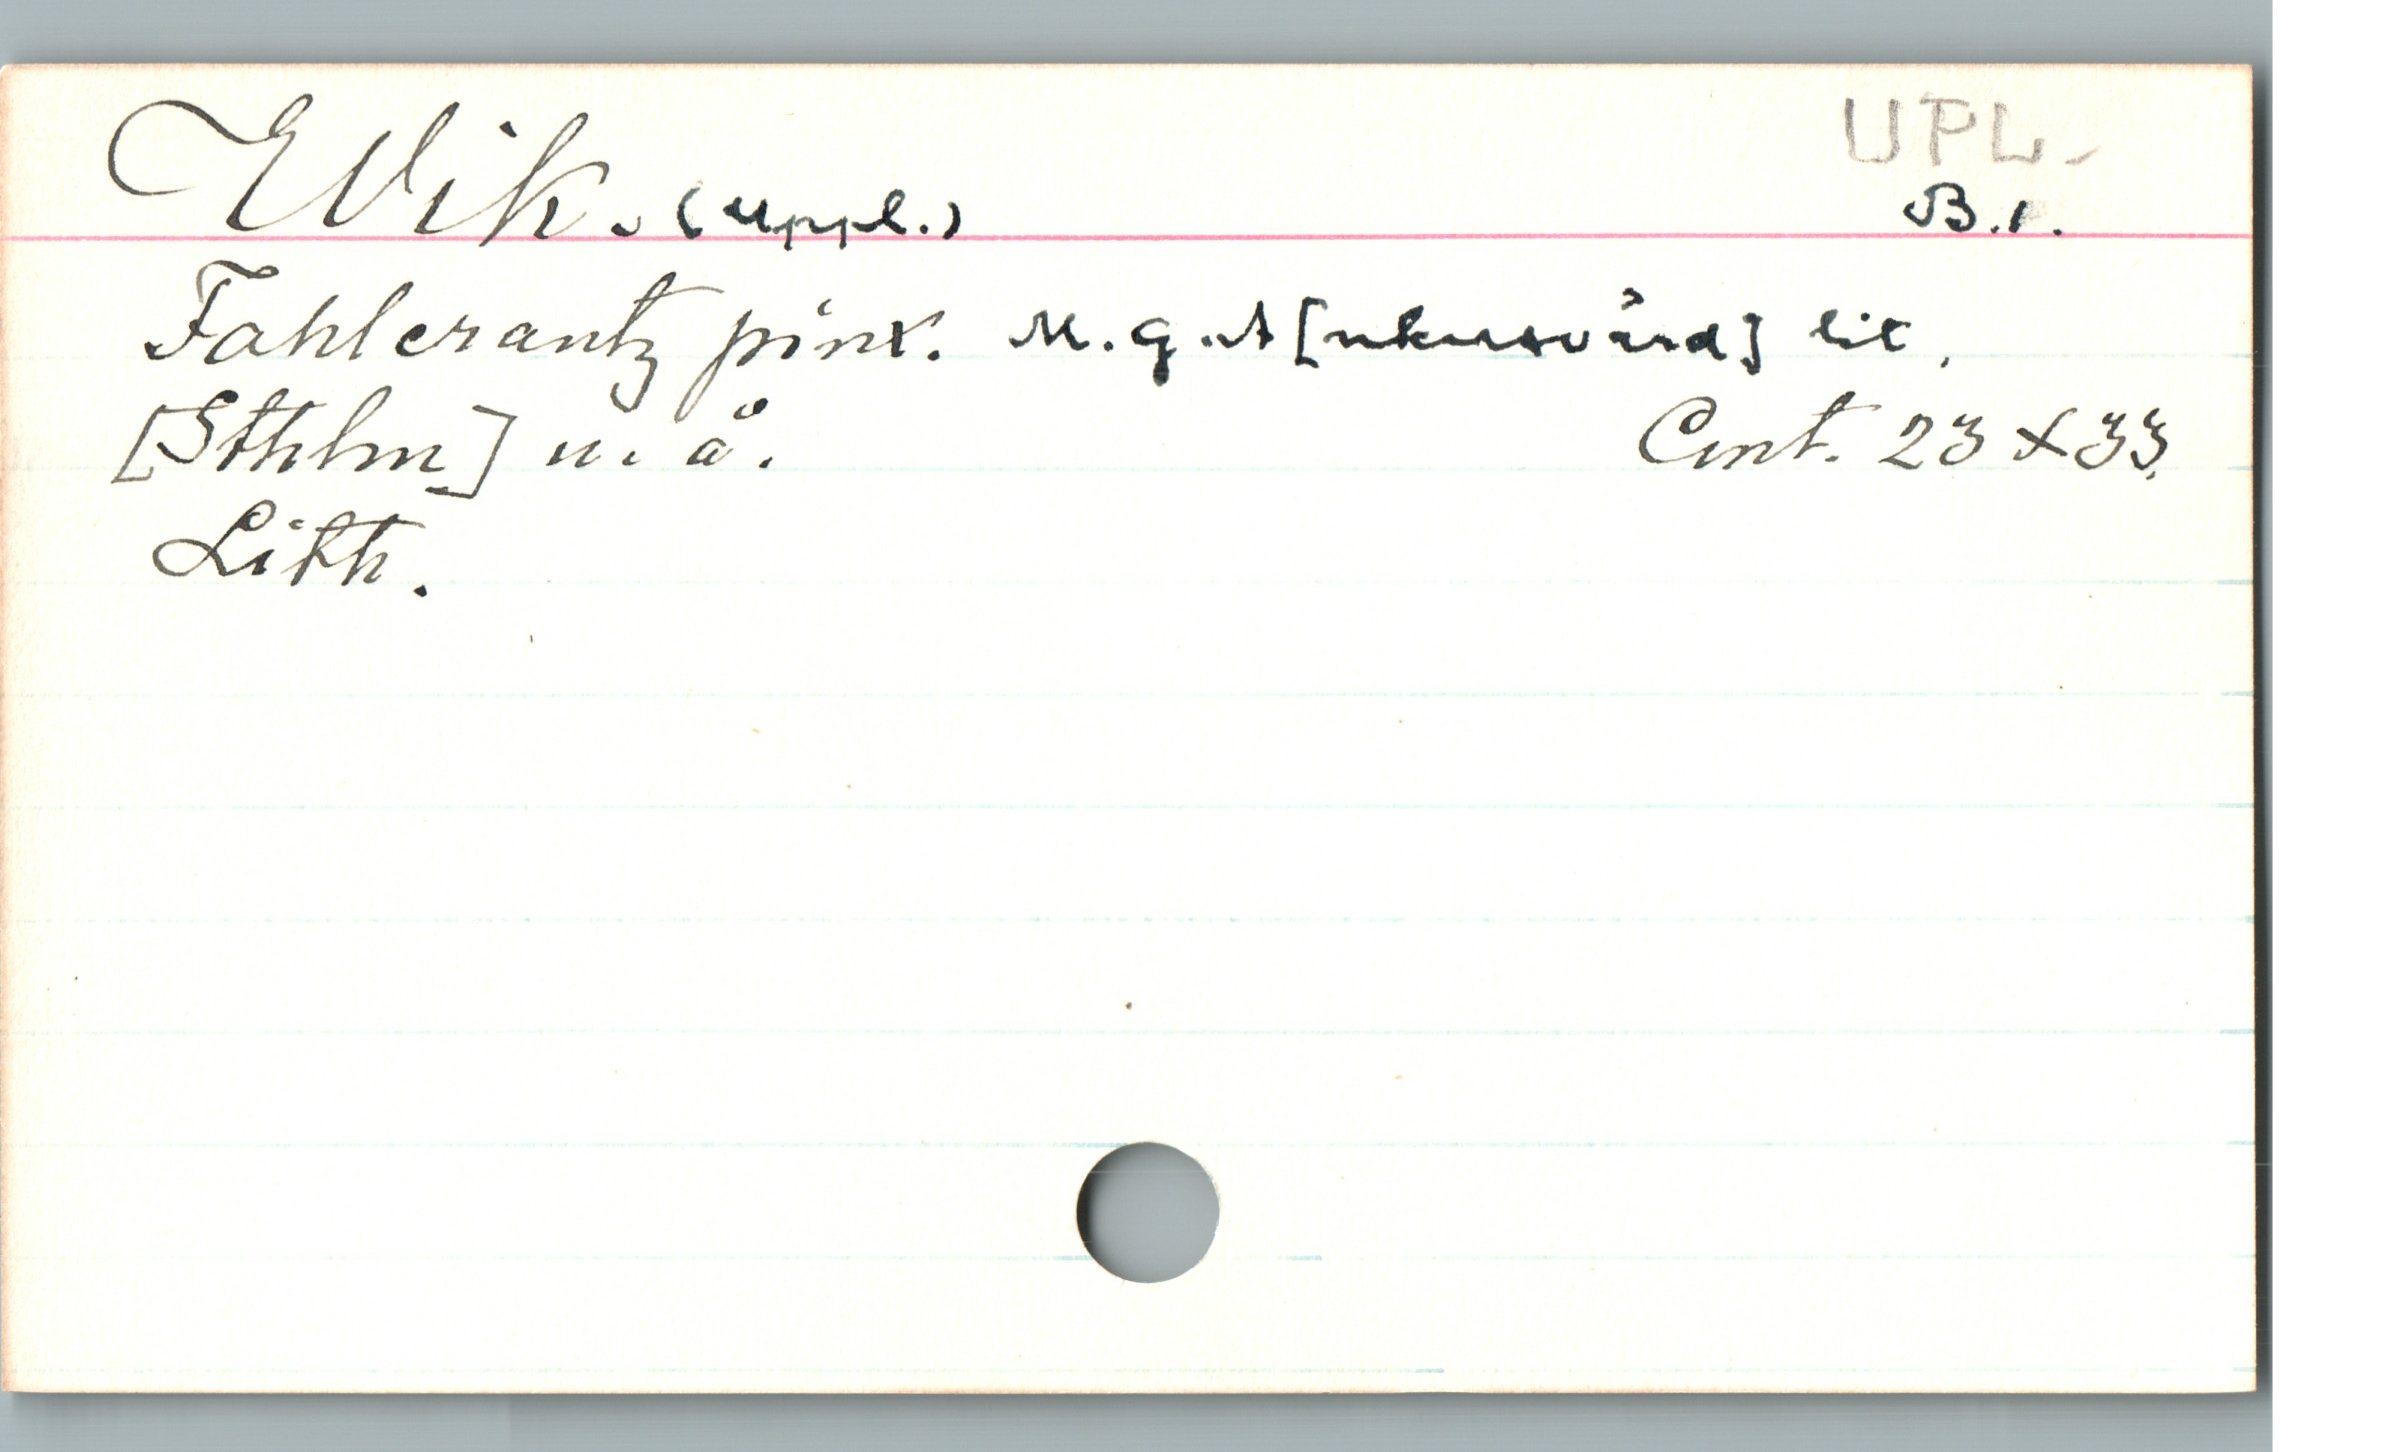 Wik. (Uppl.) UPL.
B.1.
Fahlcrantz pinx. M.G.A[nkarsvärd] lit.
[Sthlm] u. å. Cent. 23 x 33.
Lith.